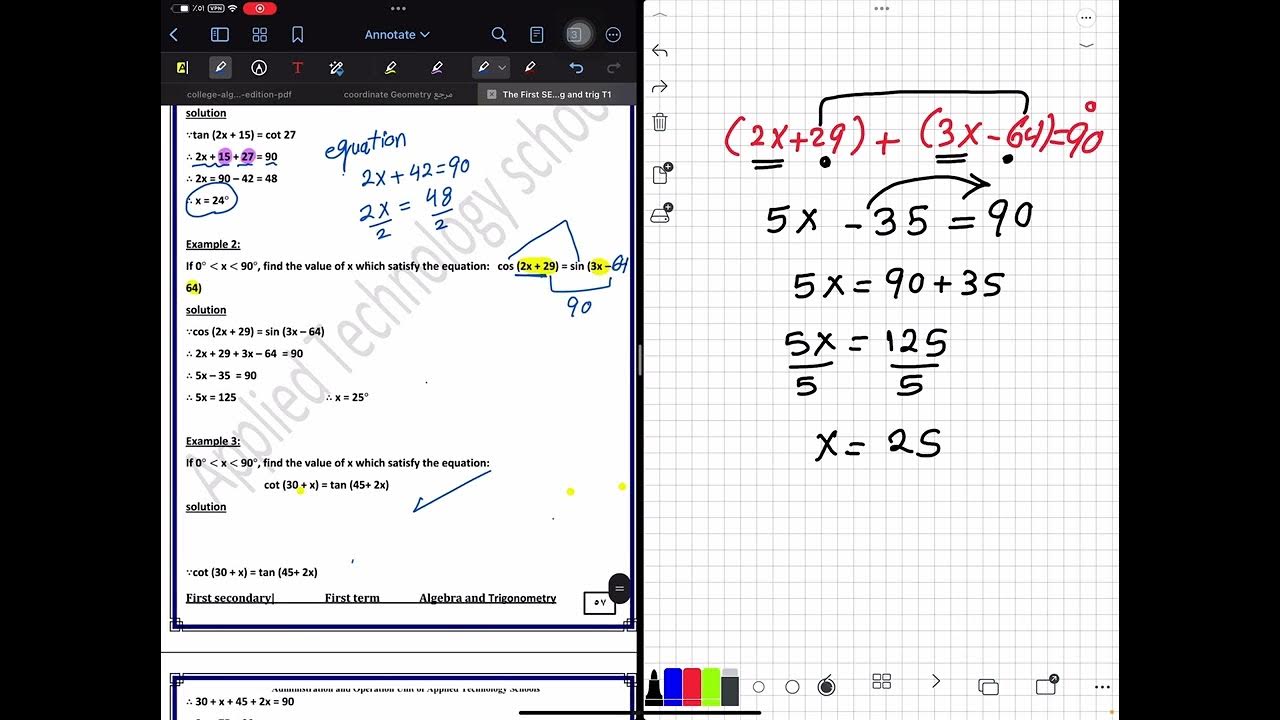 ٪٥١ VPN
Annotate
3
T
college-alg...-edition-pdf
coordinate Geometry مرجع
The First SE...g and trig T1
solution
∵tan (2x + 15) = cot 27
∴ 2x + 15 + 27 = 90
∴ 2x = 90 – 42 = 48
∴ x = 24°
equation
2x + 42 = 90
2x = 48
2 2
Example 2:
If 0° < x < 90°, find the value of x which satisfy the equation: cos (2x + 29) = sin (3x – 64
64)
90
solution
∵cos (2x + 29) = sin (3x – 64)
∴ 2x + 29 + 3x – 64 = 90
∴ 5x – 35 = 90
∴ 5x = 125 ∴ x = 25°
Example 3:
If 0° < x < 90°, find the value of x which satisfy the equation:
cot (30 + x) = tan (45+ 2x)
solution
∵cot (30 + x) = tan (45+ 2x)
First secondary| First term Algebra and Trigonometry
٥٧
Applied Technology school
Administration and Operation Unit of Applied Technology Schools
∴ 30 + x + 45 + 2x = 90
(2x+29) + (3x-64)=90°
5x - 35 = 90
5x = 90 + 35
5x = 125
5 5
x = 25